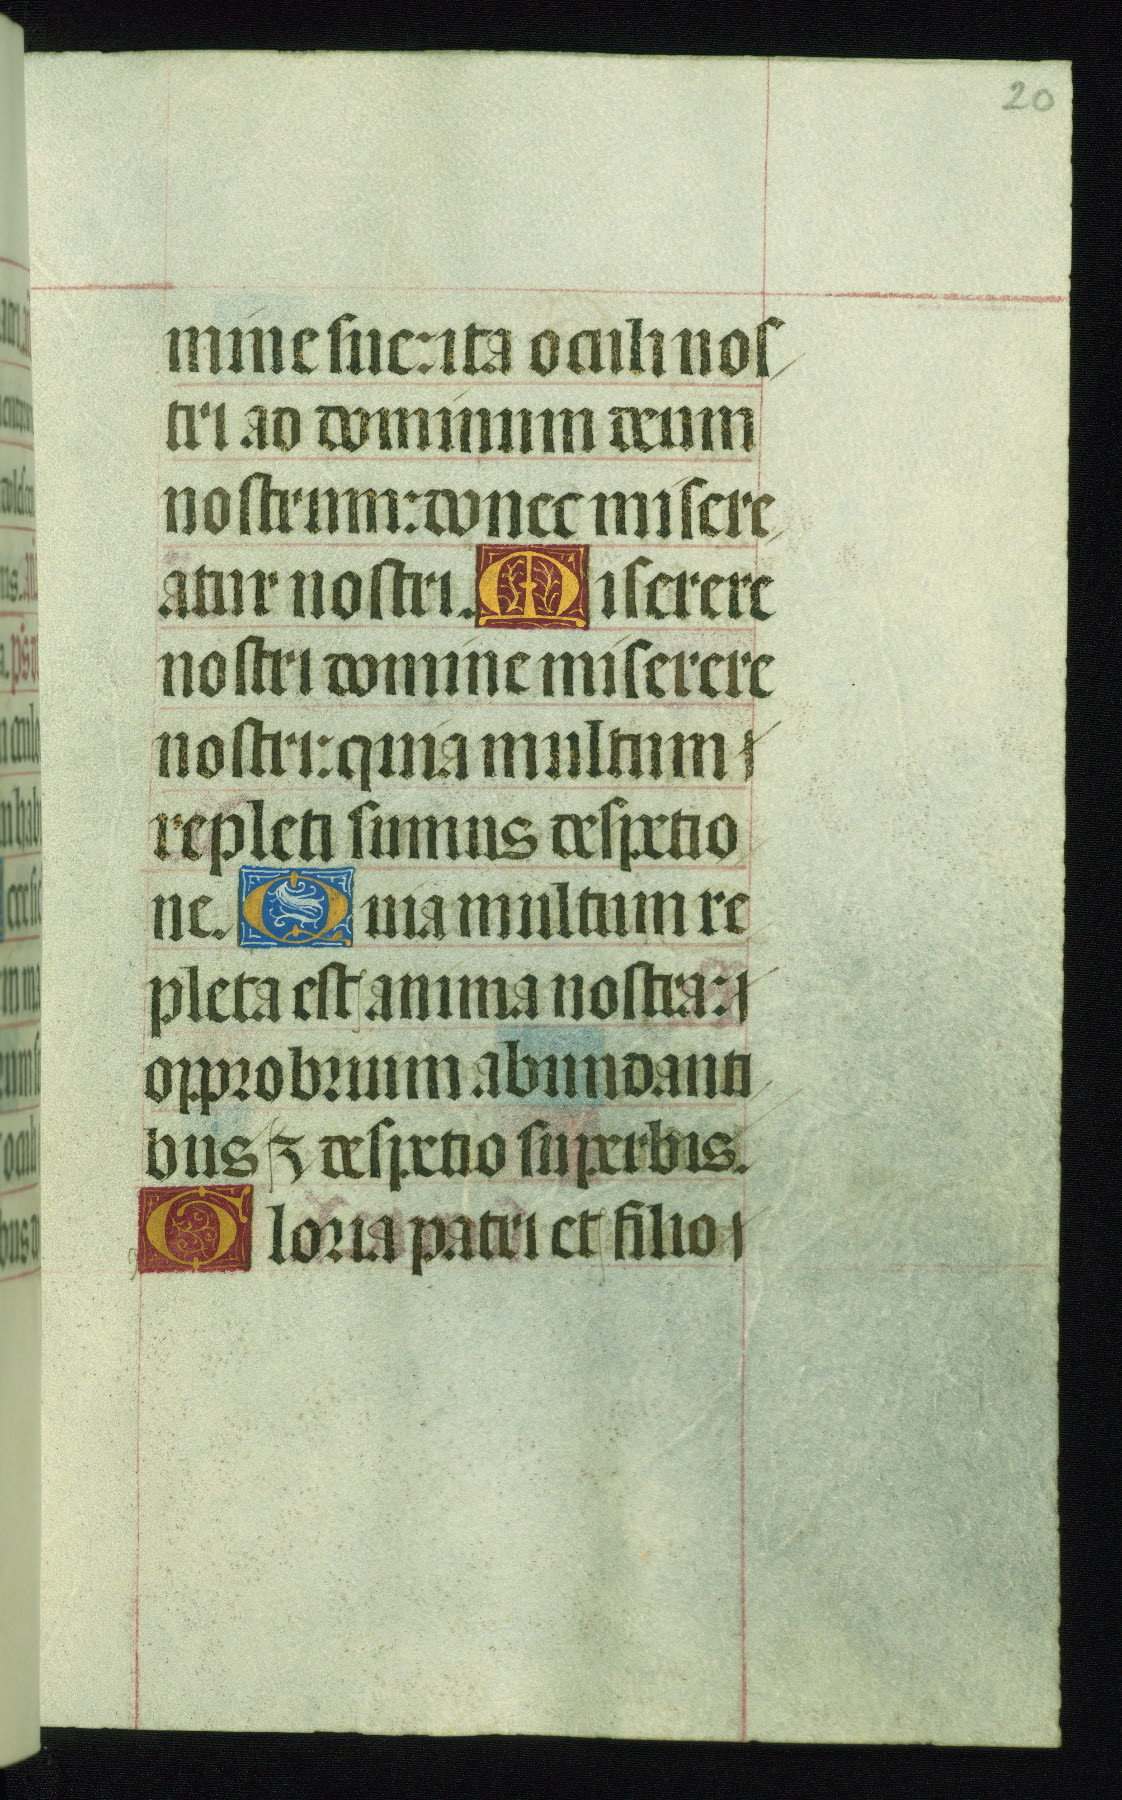 20
mine sue: ita oculi nos
tri ad dominum deum
nostrum: donec misere
atur nostri. Miserere
nostri domine miserere
nostri: quia multum
repleti sumus despectio
ne. Quia multum re
pleta est anima nostra:
opprobrium abundanti
bus ⁊ despectio superbis.
Gloria patri et filio